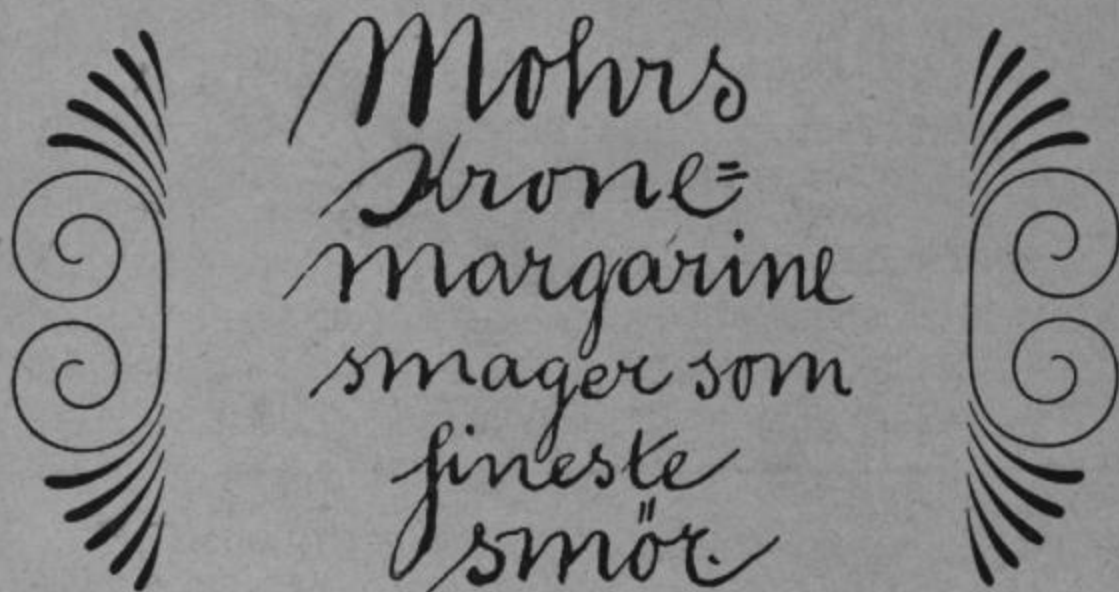 Mohrs
Krone=
margarine
smager som
fineste
smör.